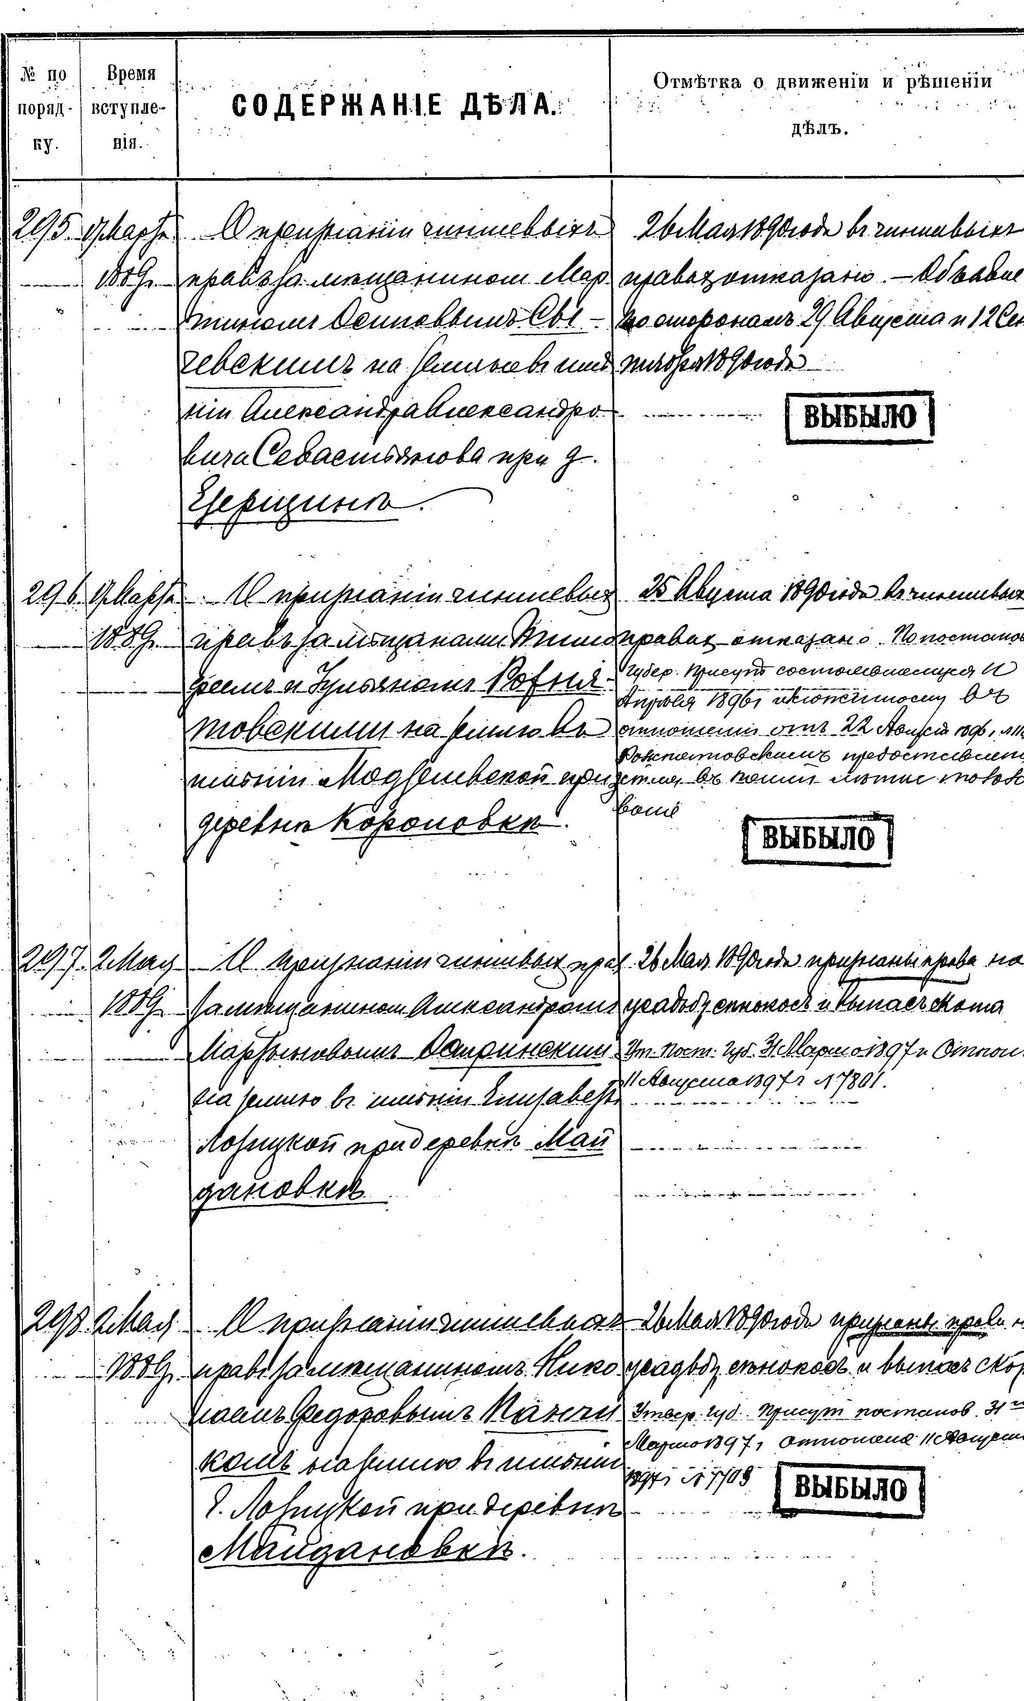 № по поряд- ку.
Время вступле- нія.
СОДЕРЖАНІЕ ДѢЛА.
Отмѣтка о движеніи и рѣшеніи
дѣлъ.
295. Марта 188 г.
О признаніи чиншевыхъ
правъ за мѣщаниномъ Мар
тиномъ Осиповымъ Свѣ-
чевскимъ на землю въ имѣ
ніи Александра Александро
вича Севастьянова при д.
Езерщинѣ.
26 Мая 1890 года въ чиншевыхъ
правахъ отказано. — Объявле
но сторонамъ 29 Августа и 12 Сен
тября 1890 года
ВЫБЫЛО
296. Марта 188 г.
О признаніи чиншевых
правъ за мѣщанами Тимо
феемъ и Ульяномъ
товскими на землю въ
имѣніи Модзелевской при
деревнѣ Короповкѣ.
25 Августа 1890 года въ чиншевых
правах отказано. По постанов
Губер. Присут состоявшемуся 11
Апрѣля 1896 г изложенному въ
отношеніи отъ 22 Август 1896 г.
предоставлено
вані
ВЫБЫЛО
297. 2 Мая 188 г.
О признаніи чиншевых прав
за мѣщаниномъ Александромъ
Мартыновымъ
на землю въ имѣніи Елизавет
Лозицкой при деревнѣ Май
дановкѣ
26 Мая 1890 года признаны права на
усадьбу сѣнокосъ и выпасъ скота
Ут. Пост. Губ. 31 Марта 1897 г. Отнош
11 Августа 1897 г №7801.
298. 2 Мая 188 г.
О признаніи чиншевыхъ
правъ за мѣщаниномъ Нико
лаемъ Федоровымъ
комъ на землю въ имѣніи
Е. Лозицкой при деревнѣ
Майдановкѣ.
26 Мая 1890 года признаны права н
усадьбу сѣнокосъ и выпасъ ско
Утвер. Губ. Присут постанов. 31го
Марта 1897 г отношеніе 11 Август
1897 г №
ВЫБЫЛО